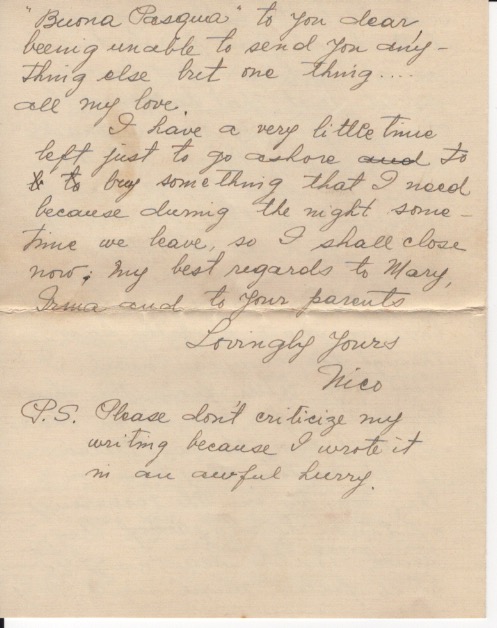 "Buona Pasqua" to you dear,
beenig unable to send you any-
thing else but one thing....
all my love.
I have a very little time
left just to go ashore and to
to buy something that I need
because during the night some-
time we leave, so I shall close
now; my best regards to Mary,
Irma and to your parents
Lovingly Yours
Nico
P.S. Please don't criticize my
writing because I wrote it
in an awful hurry.